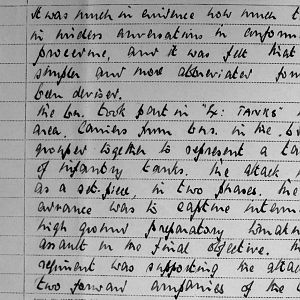 It was much in evidence how much t
in orders conversations in conform
procedure, and it was felt that
simpler and more abbreviated for
been devised.
The bn. took part in "Ex: TANKS"
area. Carriers from bns. in the b
grouped together to represent a ta
of infantry tanks. The attack
as a set-piece, in two phases. The
advance was to capture interm
high ground preparatory
assault on the final objective. The
regiment was supporting the attac
two forward companies of the